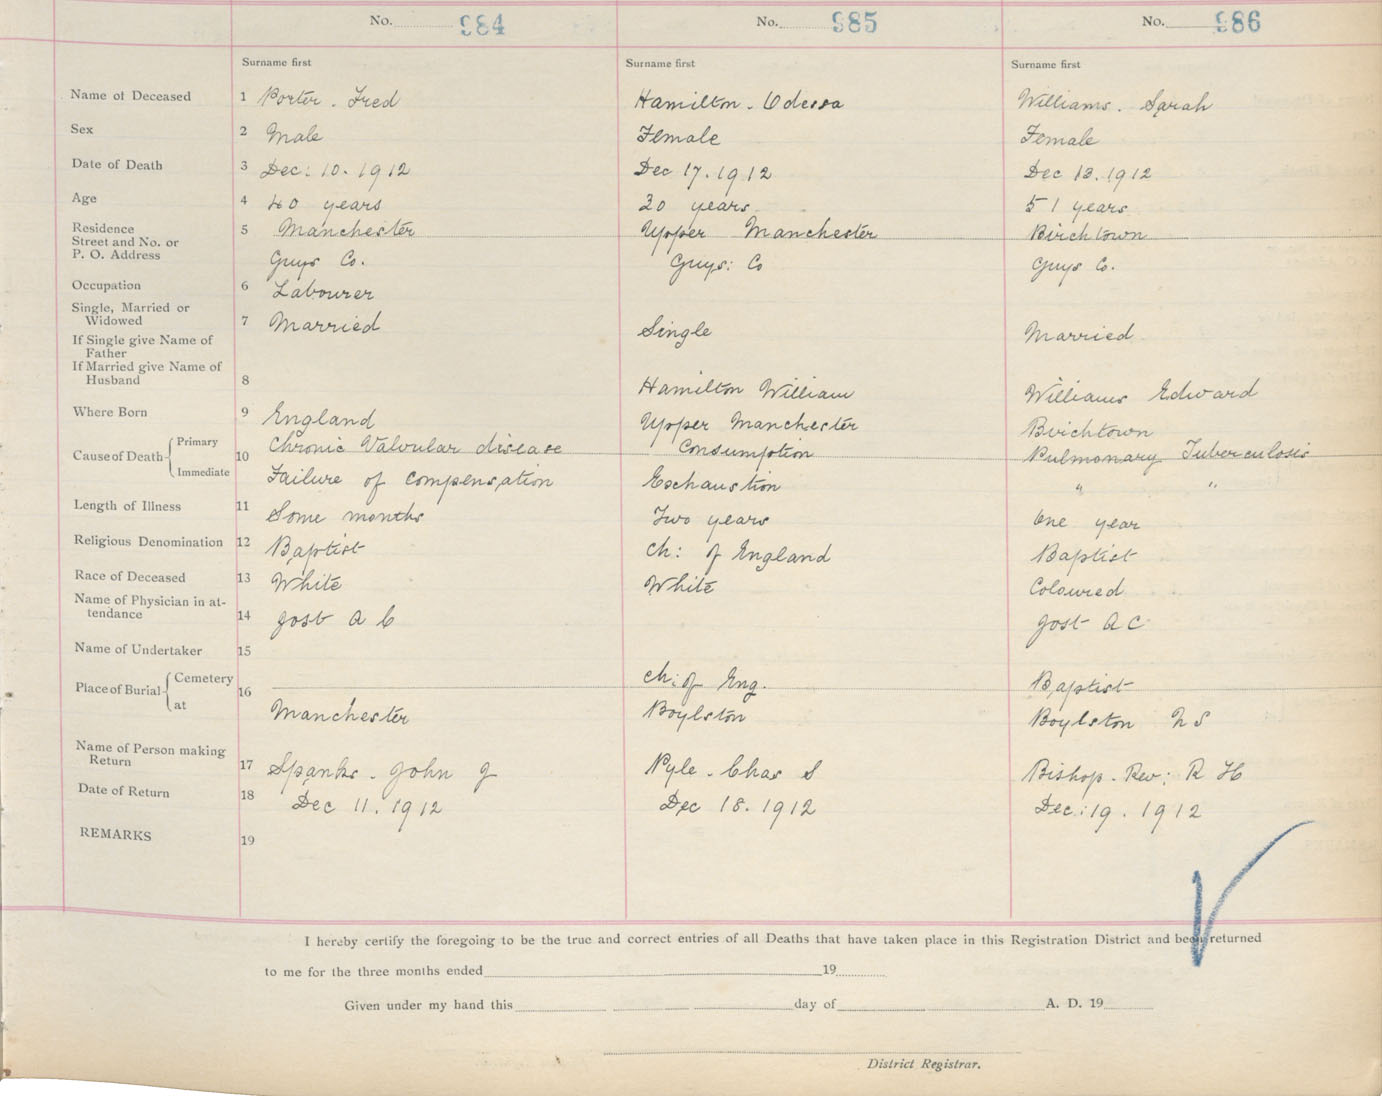 No. 984 No. 985 No. 986
Surname first Surname first Surname first
Name of Deceased 1 Porter. Fred Hamilton. Odessa Williams. Sarah
Sex 2 Male Female Female
Date of Death 3 Dec: 10. 1912 Dec 17. 1912 Dec 13. 1912
Age 4 40 years 20 years 51 years
Residence 5 Manchester Upper Manchester Birchtown
Street and No. or
P. O. Address Guys Co. Guys: Co Guys Co.
Occupation 6 Labourer
Single, Married or
Widowed 7 Married Single Married
If Single give Name of
Father
If Married give Name of
Husband 8 Hamilton William Williams Edward
Where Born 9 England Upper Manchester Birchtown
Cause of Death Primary 10 Chronic Valvular disease Consumption Pulmonary Tuberculosis
Immediate Failure of compensation Exhaustion " "
Length of Illness 11 Some months Two years One year
Religious Denomination 12 Baptist Ch: of England Baptist
Race of Deceased 13 White White Coloured
Name of Physician in at-
tendance 14 Jost A C Jost A C
Name of Undertaker 15
Place of Burial Cemetery 16 Ch: of Eng. Baptist
at Manchester Boylston Boylston N S
Name of Person making
Return 17 Spanks. John J Pyle. Chas S Bishop. Rev: R H
Date of Return 18 Dec 11. 1912 Dec 18. 1912 Dec: 19. 1912
REMARKS 19
I hereby certify the foregoing to be the true and correct entries of all Deaths that have taken place in this Registration District and been returned
to me for the three months ended 19
Given under my hand this day of A. D. 19
District Registrar.